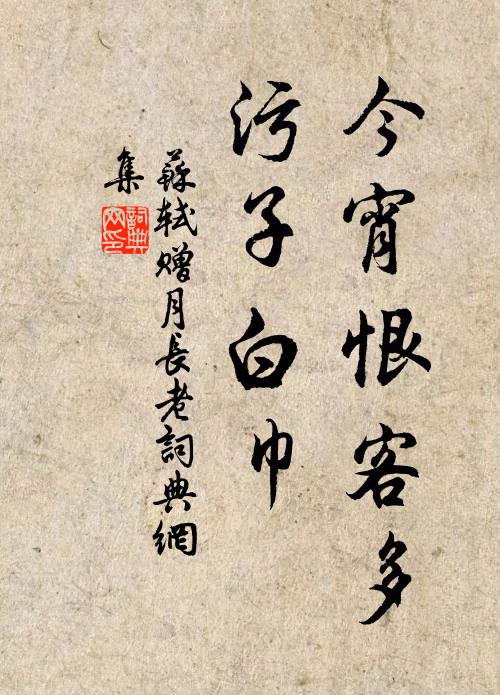 今宵恨客多
污子白巾
蘇軾赠月長老詞典網
集
詞典
网印